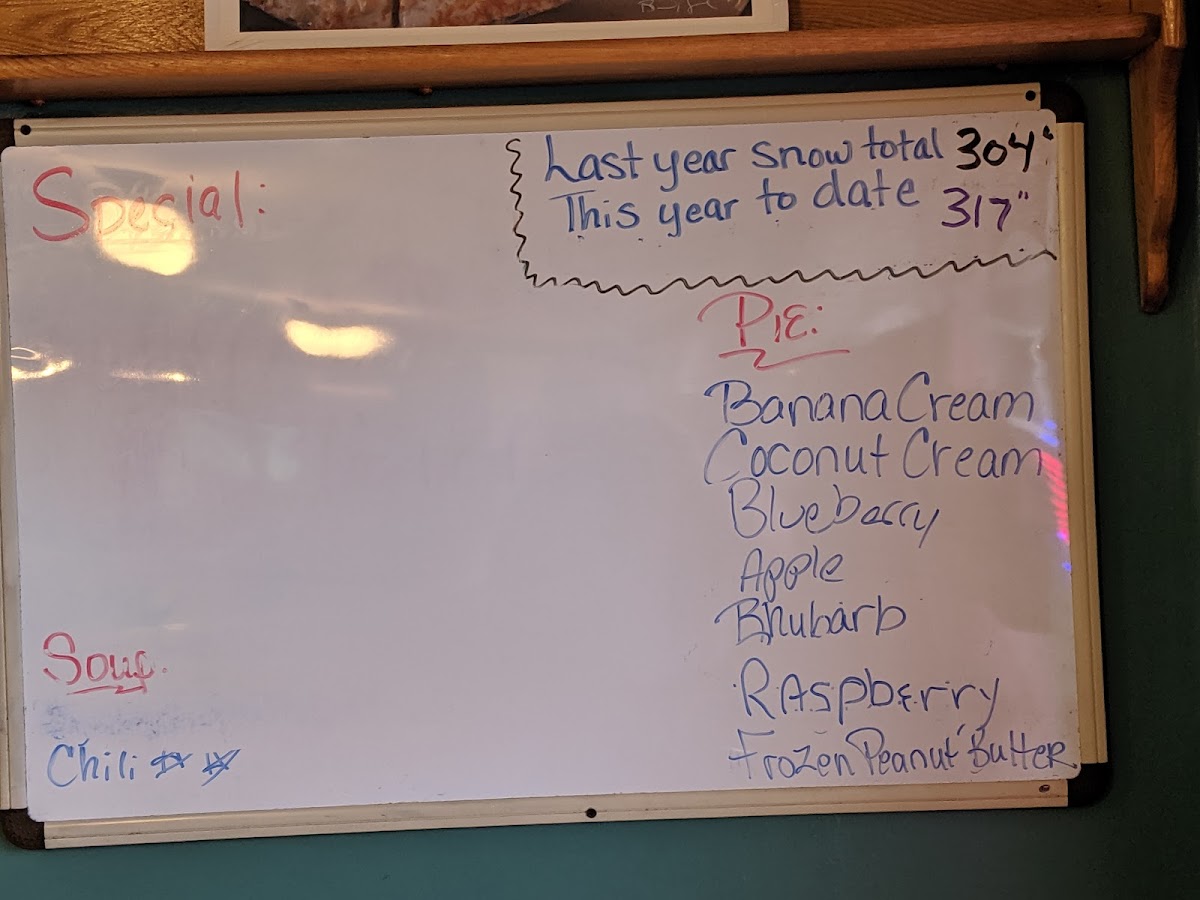 Special:
Last year snow total 304"
This year to date 317"
Pie:
Banana Cream
Coconut Cream
Blueberry
Apple
Rhubarb
Raspberry
Frozen Peanut Butter
Soup
Chili